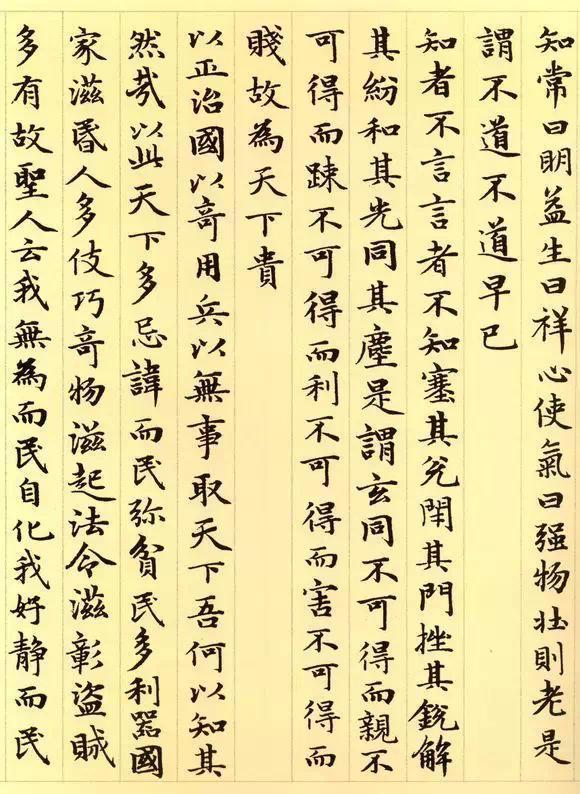 知常曰明益生曰祥心使氣曰强物壯則老是
謂不道不道早已
知者不言言者不知塞其兌閉其門挫其銳解
其紛和其光同其塵是謂玄同不可得而親不
可得而踈不可得而利不可得而害不可得而
賤故為天下貴
以正治國以奇用兵以無事取天下吾何以知其
然哉以此天下多忌諱而民弥貧民多利器國
家滋昬人多伎巧奇物滋起法令滋彰盜賊
多有故聖人云我無為而民自化我好静而民